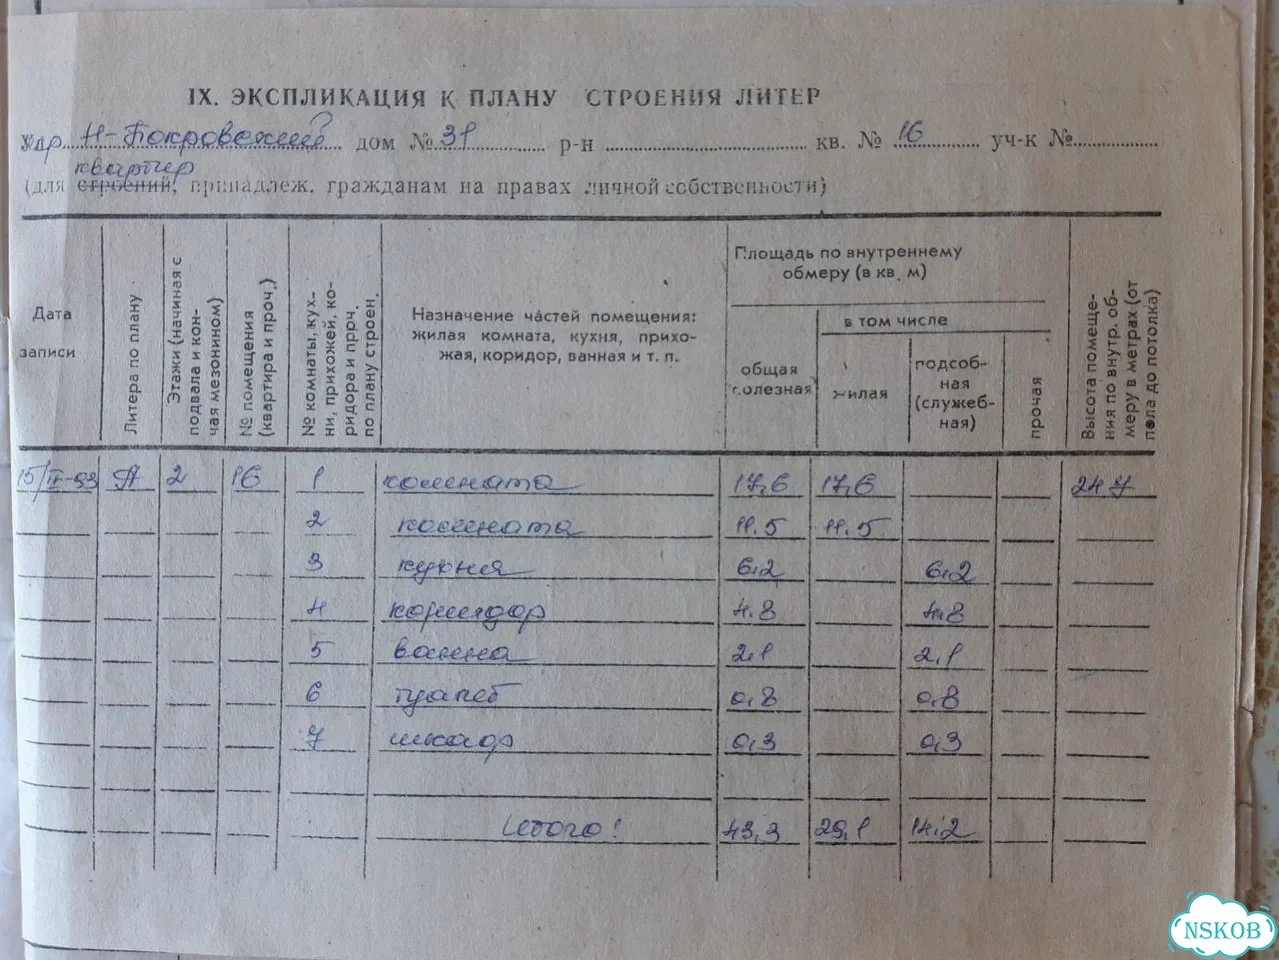 IX. ЭКСПЛИКАЦИЯ К ПЛАНУ СТРОЕНИЯ ЛИТЕР
Н-Покровский дом № 31 р-н кв. № 16 уч-к №
квартир
(для строений, принадлеж. гражданам на правах личной собственности)
Дата записи
Литера по плану
Этажи (начиная с подвала и кончая мезонином)
№ помещения (квартира и проч.)
№ комнаты, кухни, прихожей, коридора и прч. по плану строен.
Назначение частей помещения:
жилая комната, кухня, прихо-
жая, коридор, ванная и т. п.
Площадь по внутреннему
обмеру (в кв. м)
в том числе
общая полезная
жилая
подсоб-
ная
(служеб-
ная)
прочая
Высота помеще-
ния по внутр. об-
меру в метрах (от
пола до потолка)
15/IX-93 А 2 16 1 комната 17,6 17,6 247
2 комната 11.5 11.5
3 кухня 6,2 6,2
4 коридор 4.8 4.8
5 ванна 2,1 2,1
6 туалет 0,8 0,8
7 шкаф 0,3 0,3
Итого! 43,3 29,1 14,2
NSKOB